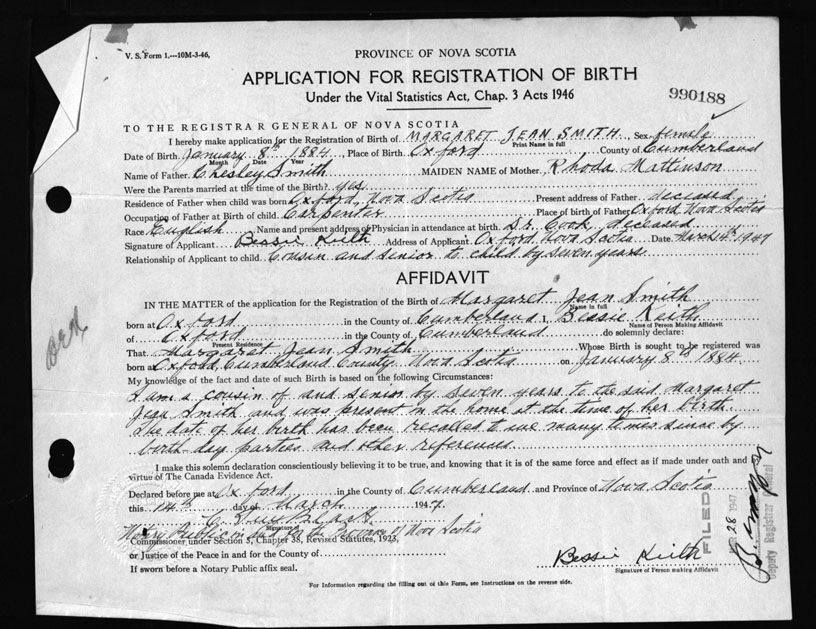 V. S. Form 1.—10M-3-46.
PROVINCE OF NOVA SCOTIA
APPLICATION FOR REGISTRATION OF BIRTH
Under the Vital Statistics Act, Chap. 3 Acts 1946
990188
TO THE REGISTRAR GENERAL OF NOVA SCOTIA
I hereby make application for the Registration of Birth of MARGARET JEAN SMITH, Sex female
Print Name in full
Date of Birth January 8th 1884, Place of Birth Oxford County of Cumberland
Month Date Year
Name of Father Chesley Smith MAIDEN NAME of Mother Rhoda Mattinson
Were the Parents married at the time of the Birth? yes
Residence of Father when child was born Oxford, Nova Scotia Present address of Father deceased
Occupation of Father at Birth of child Carpenter Place of birth of Father Oxford Nova Scotia
Race English Name and present address of Physician in attendance at birth Dr. Cook, deceased
Signature of Applicant Bessie Keith Address of Applicant Oxford, Nova Scotia Date March 14th 1947
Relationship of Applicant to child Cousin and senior to child by seven years
AFFIDAVIT
IN THE MATTER of the application for the Registration of Birth of Margaret Jean Smith
Name in full
born at Oxford in the County of Cumberland I, Bessie Keith
Name of Person Making Affidavit
of Oxford in the County of Cumberland do solemnly declare:
Present Residence
That Margaret Jean Smith Whose Birth is sought to be registered was
born at Oxford, Cumberland County Nova Scotia on January 8th 1884
My knowledge of the fact and date of such Birth is based on the following Circumstances:
I am a cousin of and senior by seven years to the said Margaret
Jean Smith and was present in the home at the time of her birth.
The date of her birth has been recalled to me many times since by
birth-day parties and other references
I make this solemn declaration conscientiously believing it to be true, and knowing that it is of the same force and effect as if made under oath and by
virtue of The Canada Evidence Act.
Declared before me at Oxford in the County of Cumberland and Province of Nova Scotia
this 14th day of March 1947.
Signature
Notary Public in and for the Province of Nova Scotia
Commissioner under Section 5, Chapter 38, Revised Statutes, 1923,
or Justice of the Peace in and for the County of
If sworn before a Notary Public affix seal.
Bessie Keith
Signature of Person making Affidavit
For Information regarding the filling out of this Form, see Instructions on the reverse side.
FILED
MAR 28 1947
Deputy Registrar General